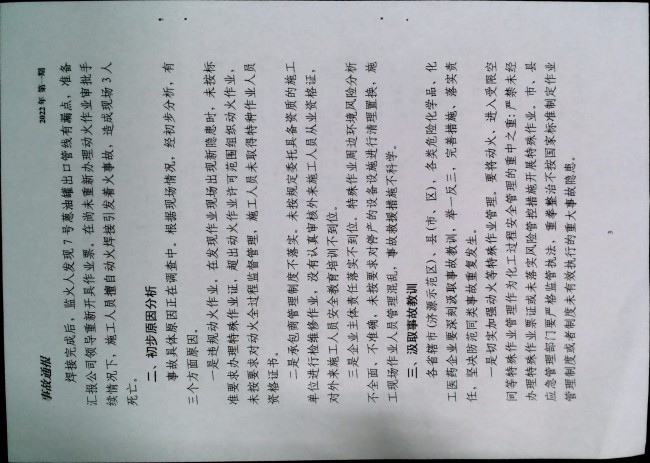 事故通报
2022 年 第一期
焊接完成后，监火人发现 7 号蒽油罐出口管线有漏点，准备
汇报公司领导重新开具作业票，在尚未重新办理动火作业审批手
续情况下，施工人员擅自动火焊接引发着火事故，造成现场 3 人
死亡。
二、初步原因分析
事故具体原因正在调查中。根据现场情况，经初步分析，有
三个方面原因。
一是违规动火作业。在发现作业现场出现新隐患时，未按标
准要求办理特殊作业证，超出动火作业许可范围组织动火作业，
未按要求对动火全过程监督管理，施工人员未取得特种作业人员
资格证书。
二是承包商管理制度不落实。未按规定委托具备资质的施工
单位进行检维修作业，没有认真审核外来施工人员从业资格证，
对外来施工人员安全教育培训不到位。
三是企业主体责任落实不到位。特殊作业周边环境风险分析
不全面、不准确，未按要求对停产的设备设施进行清理置换，施
工现场作业人员管理混乱，事故救援措施不科学。
三、汲取事故教训
各省辖市(济源示范区)、县(市、区)，各类危险化学品、化
工医药企业要深刻汲取事故教训，举一反三，完善措施、落实责
任，坚决防范同类事故重复发生。
一是切实加强动火等特殊作业管理。要将动火、进入受限空
间等特殊作业管理作为化工过程安全管理的重中之重；严禁未经
办理特殊作业票证或未落实风险管控措施开展特殊作业。市、县
应急管理部门要严格监管执法，重拳整治不按国家标准制定作业
管理制度或者制度未有效执行的重大事故隐患。
3